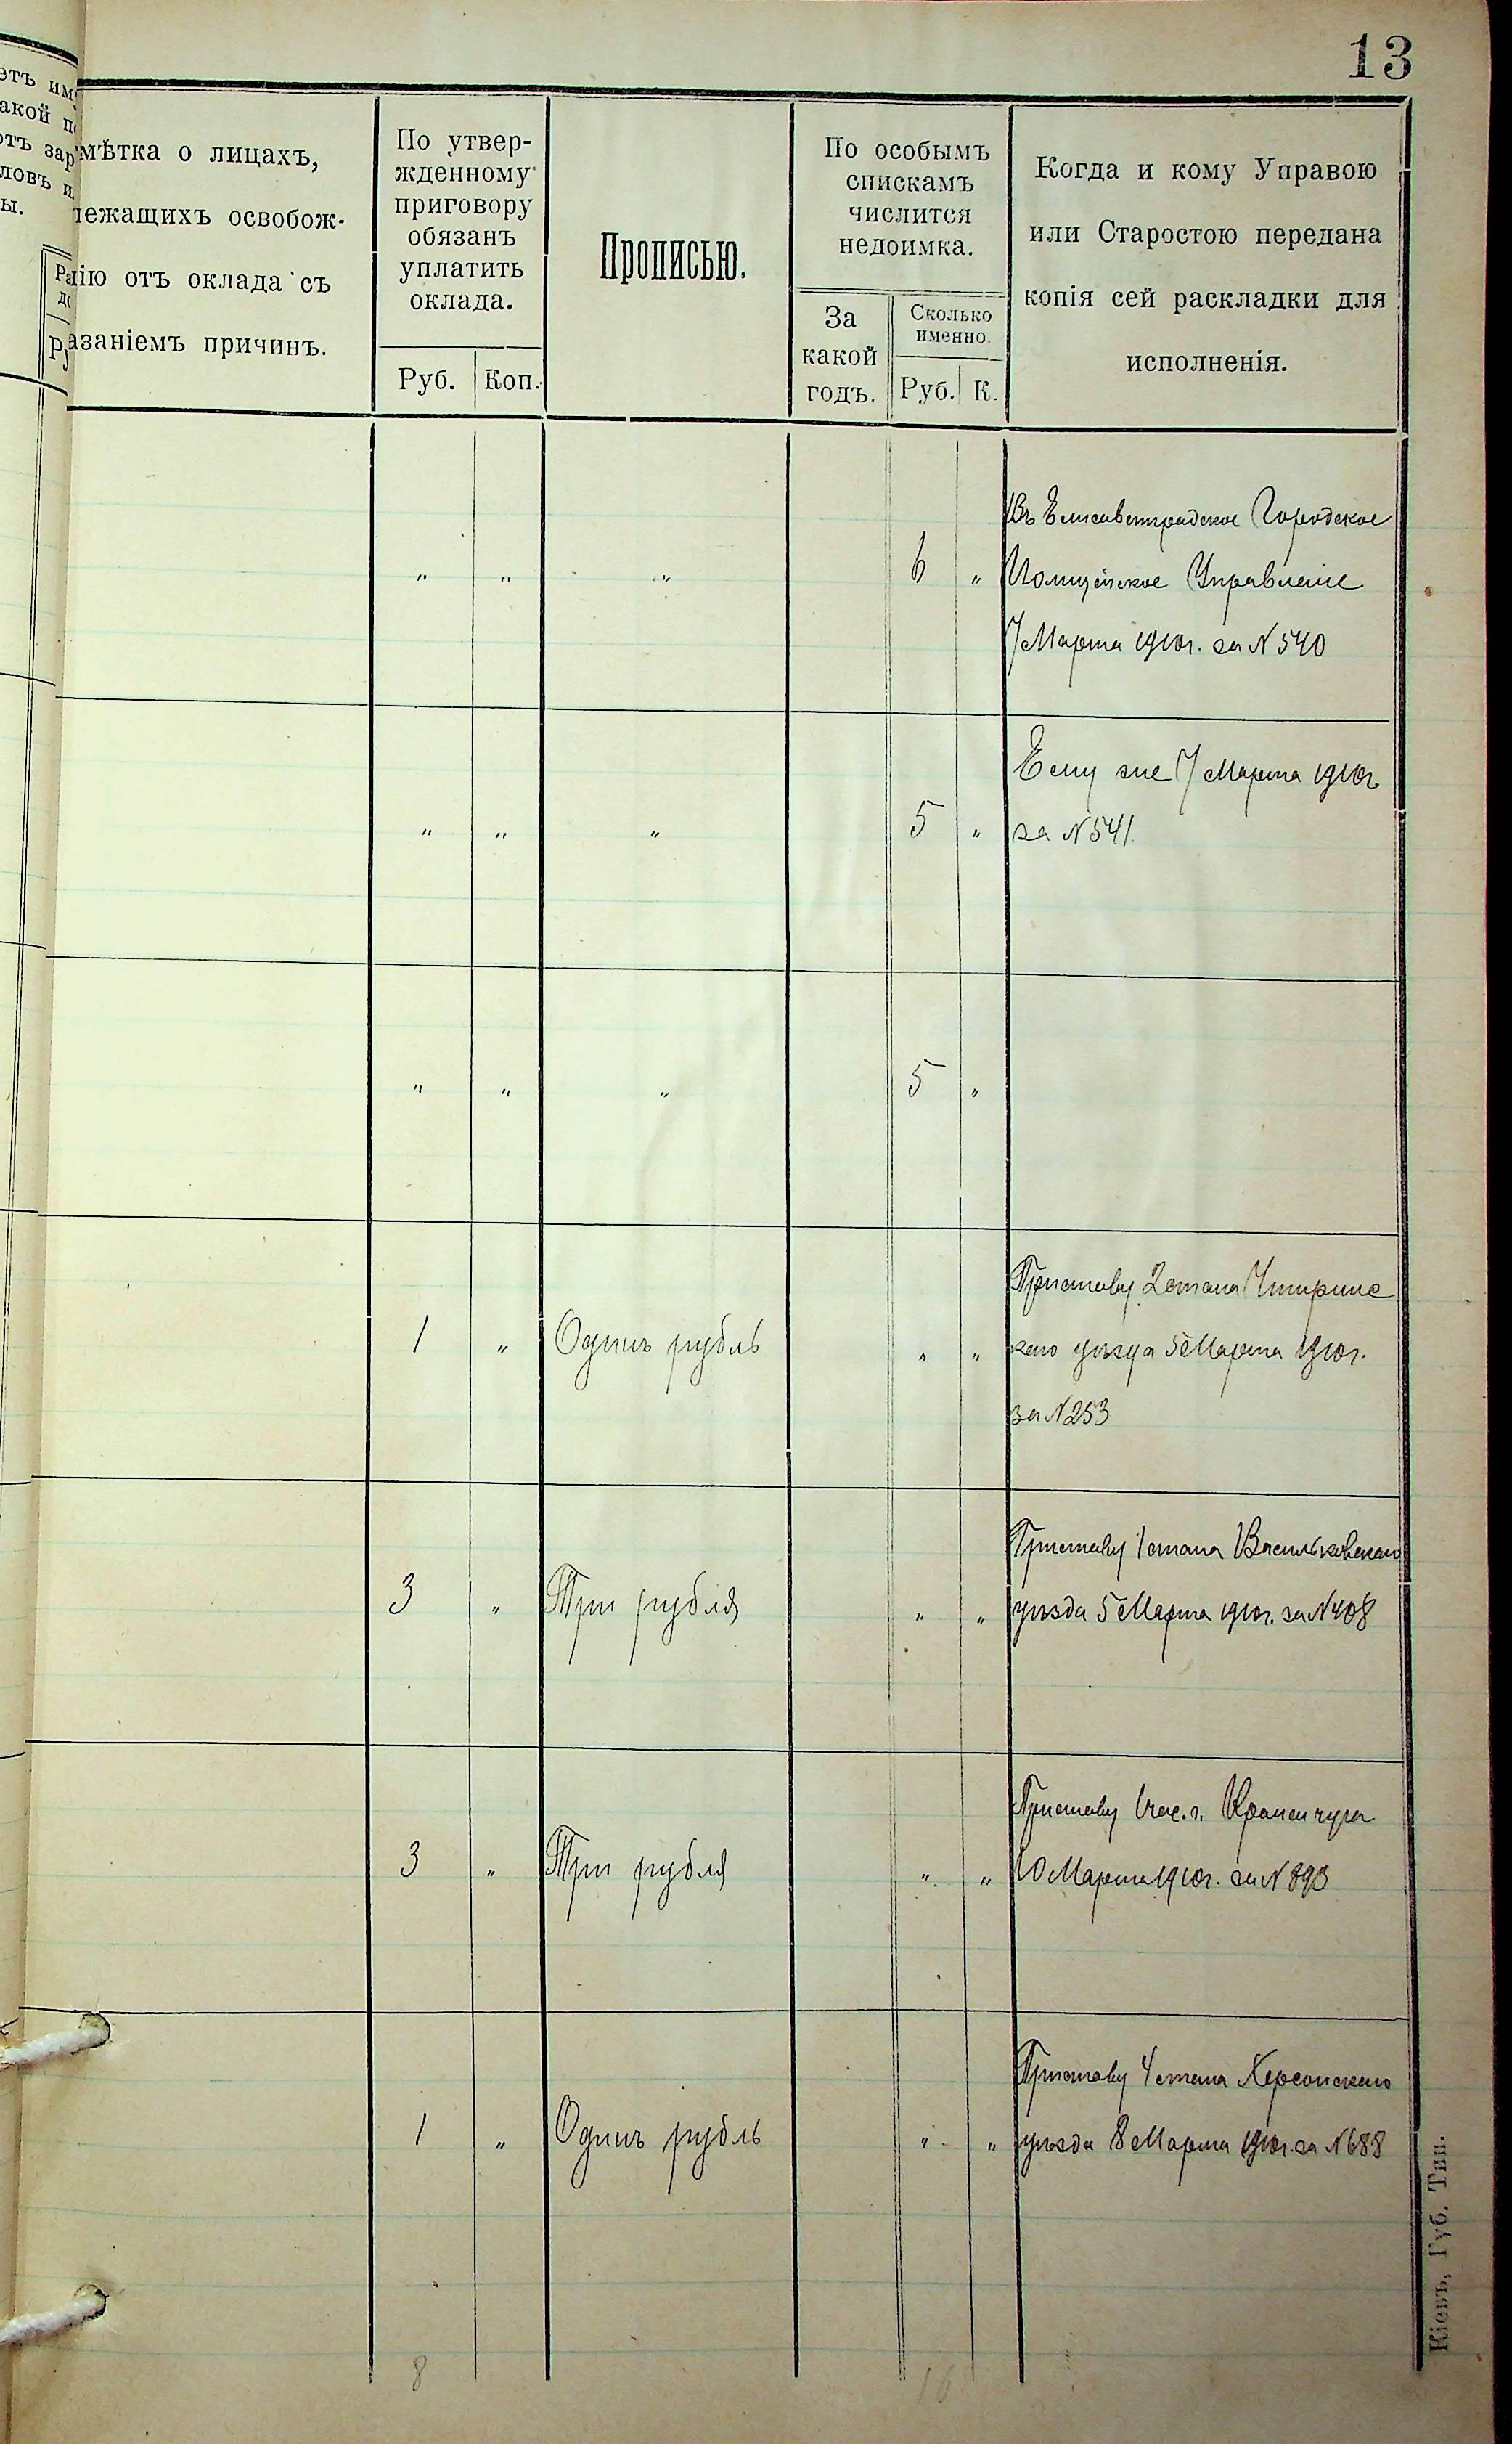 13
етъ им
акой п
отъ зар
ловъ и
ы.
мѣтка о лицахъ,
лежащихъ освобож-
нію отъ оклада съ
азаніемъ причинъ.
По утвер-
жденному
приговору
обязанъ
уплатить
оклада.
Руб. Коп.
Прописью.
По особымъ
спискамъ
числится
недоимка.
За
какой
годъ.
Сколько
именно.
Руб. К.
Когда и кому Управою
или Старостою передана
копія сей раскладки для
исполненія.
Въ Елисаветградское Городское
" " " 6 " Полицейское Управленіе
7 Марта 1910г. за № 540
Ему же 7 Марта 1910г.
" " " 5 " за № 541.
" " " 5 "
Приставу 2 стана Чигиринс
1 " Одинъ рубль " " каго уѣзда 5 Марта 1910г.
за № 253
Приставу 1 стана Васильковскаго
3 " Три рубля " " уѣзда 5 Марта 1910г. за № 408
Приставу 1 час. г. Кременчуга
3 " Три рубля " " 10 Марта 1910г. за № 893
Приставу 4 стана Херсонскаго
1 " Одинъ рубль " " уѣзда 8 Марта 1910г. за № 688
8 16
Кіевъ, Губ. Тип.